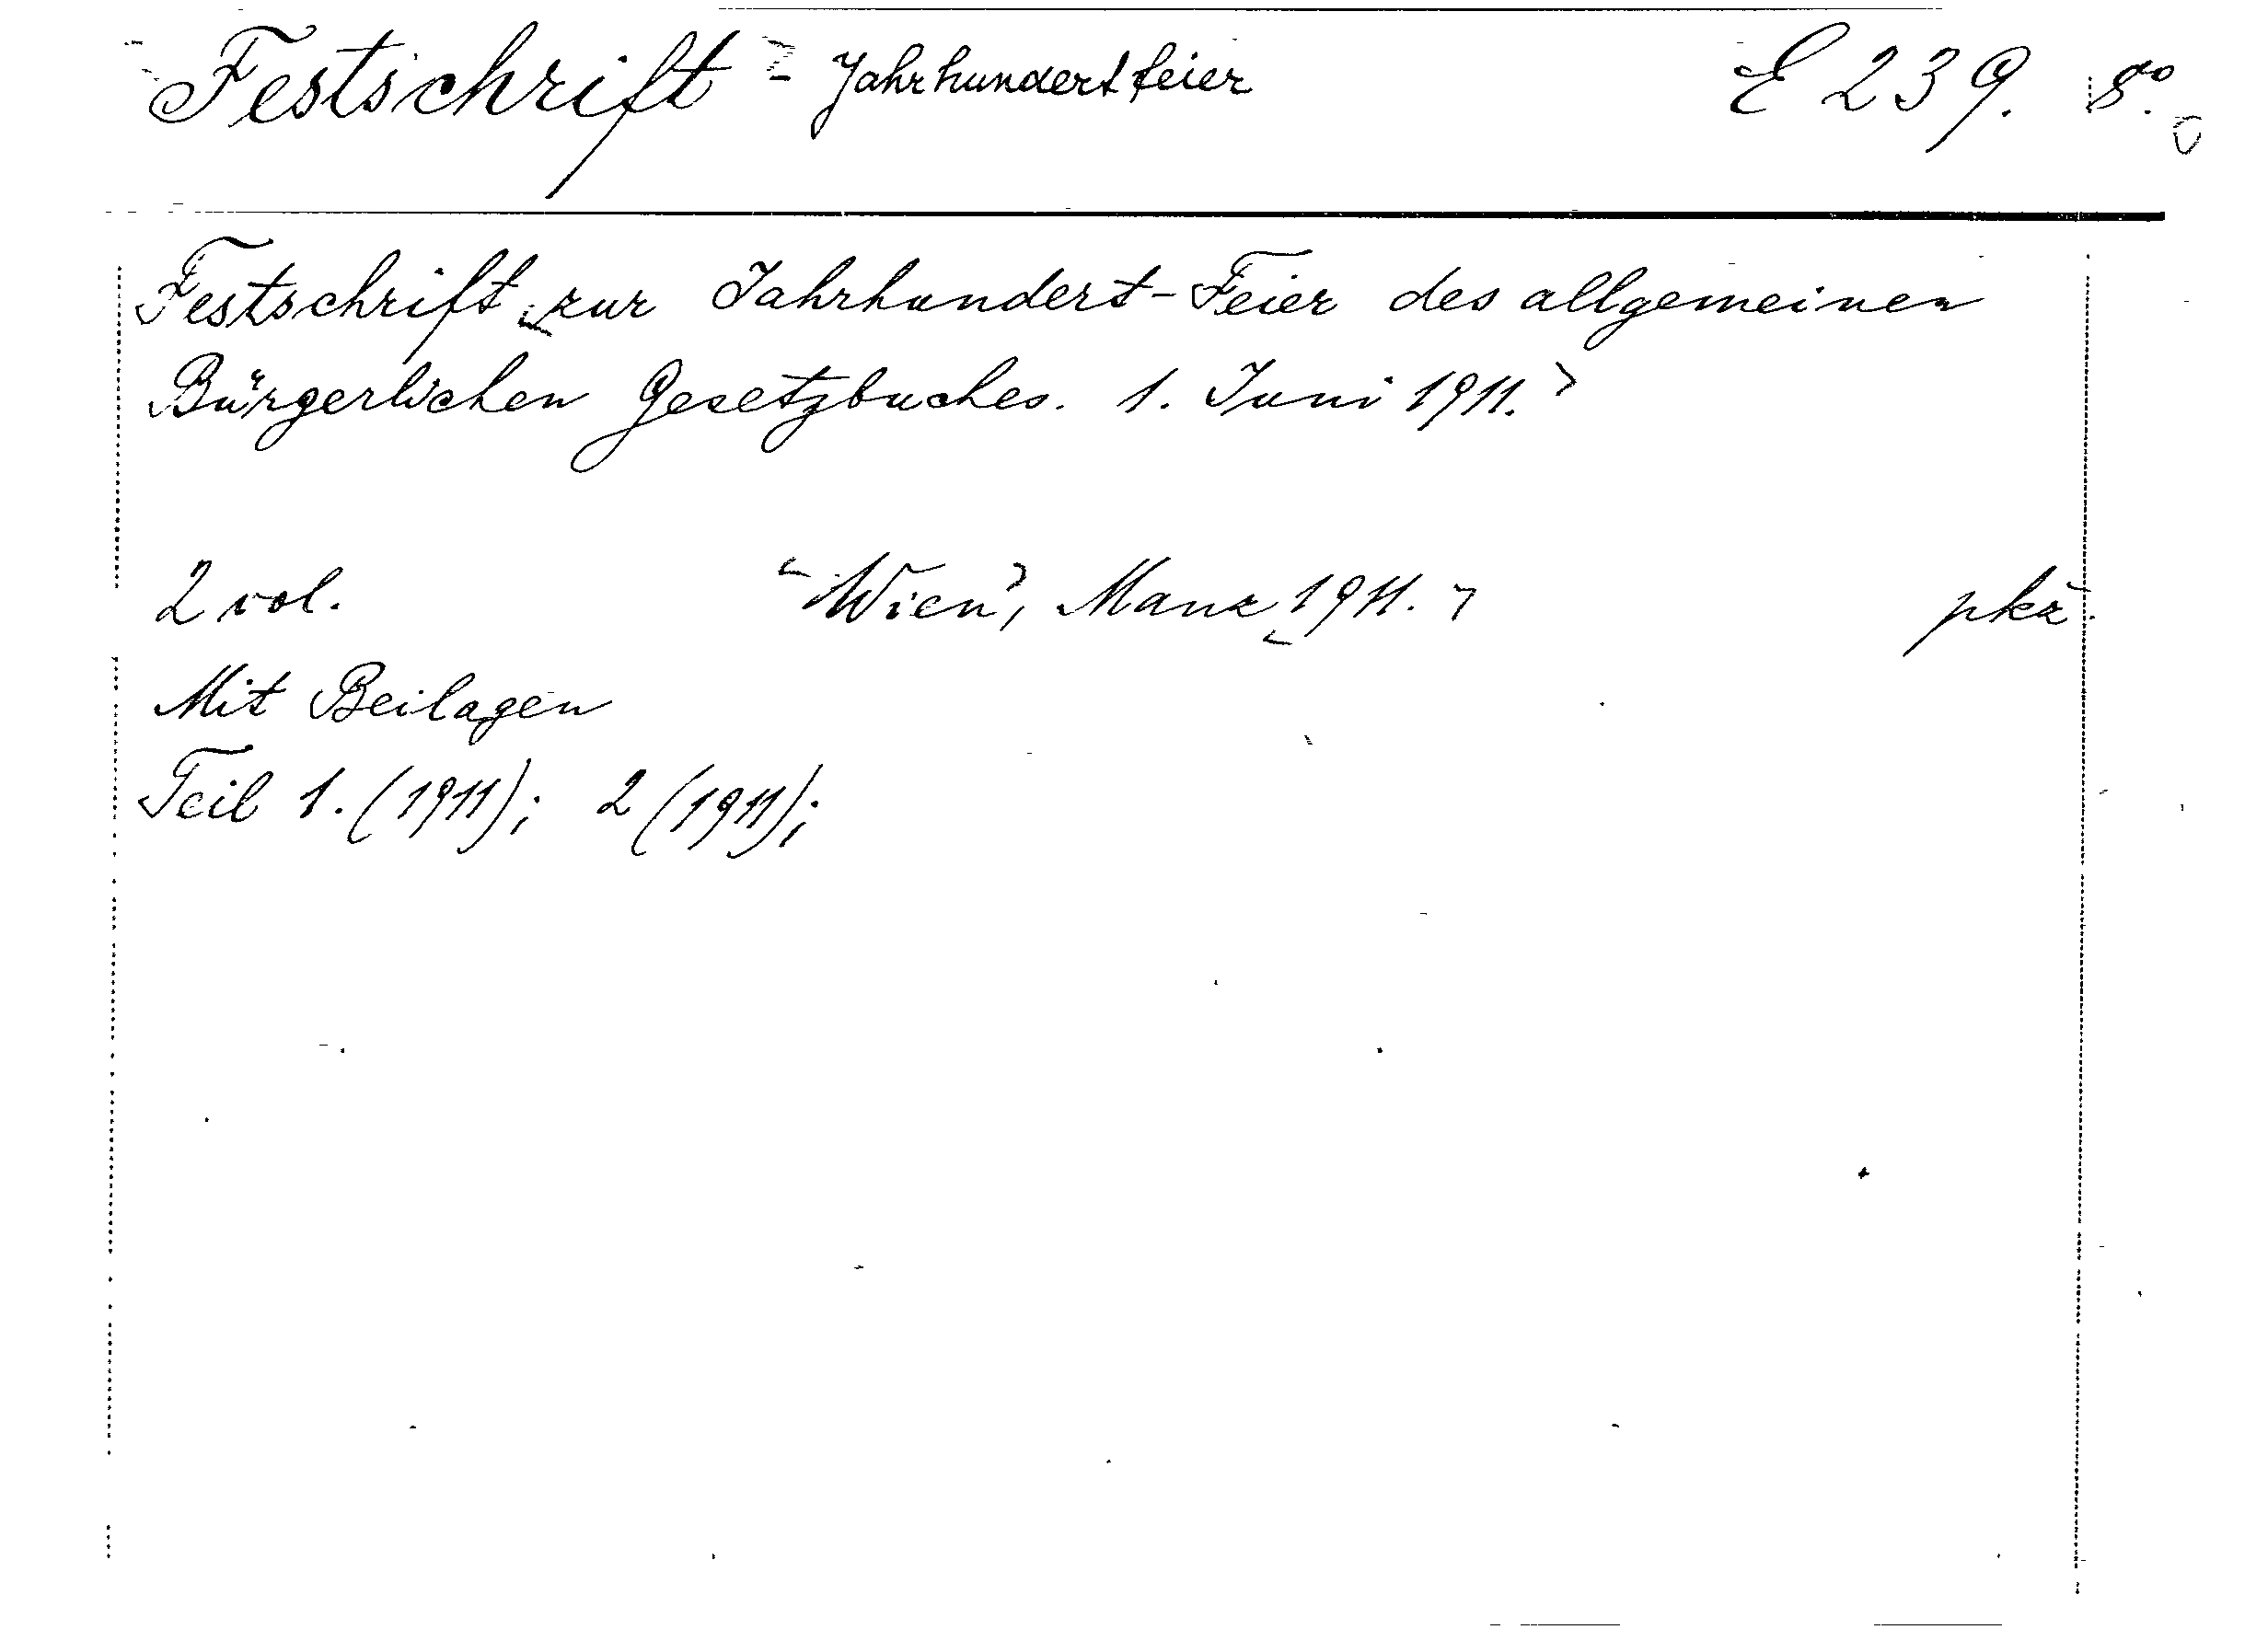 Festschrift - Jahrhundertfeier E 239. 8°.
Festschrift zur Jahrhundert-Feier des allgemeinen
Bürgerlichen Gesetzbuches. 1. Juni 1911.
2 vol. Wien, Manz 1911. pkż.
Mit Beilagen
Teil 1. (1911); 2 (1911);